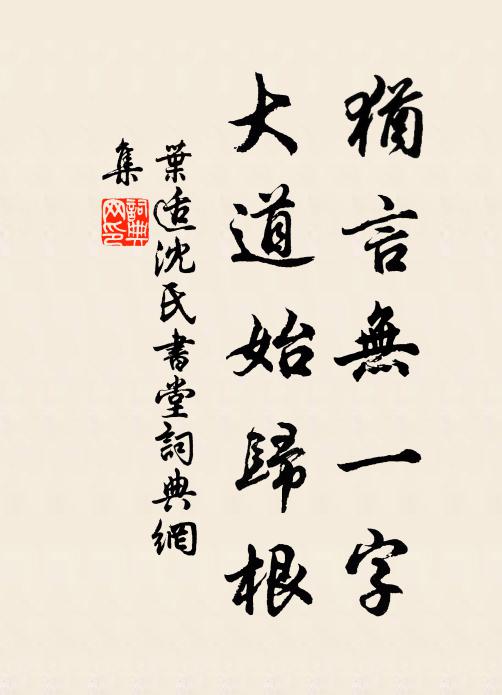 猶言無一字
大道始歸根
葉適沈氏書堂詞典網
集
詞典
网印